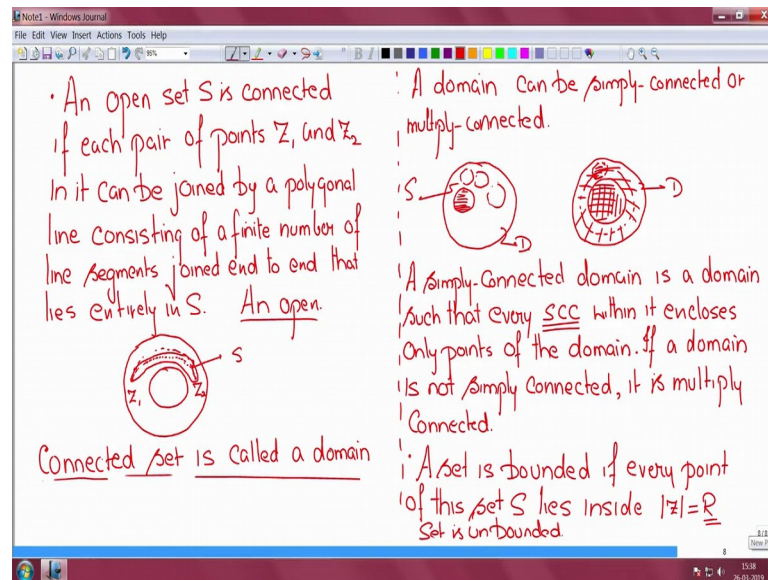 Note1 - Windows Journal
File Edit View Insert Actions Tools Help
96%
B I
· An open set S is connected
if each pair of points Z1 and Z2
in it can be joined by a polygonal
line consisting of a finite number of
line segments joined end to end that
lies entirely in S. An open.
S
Z1 Z2
Connected set is called a domain
A domain can be simply-connected or
multiply-connected.
S D
D
A simply-connected domain is a domain
such that every SCC within it encloses
only points of the domain. If a domain
is not simply connected, it is multiply
connected.
· A set is bounded if every point
of this set S lies inside |z|=R
Set is unbounded.
8/8
New P
8
15:38
26-03-2019